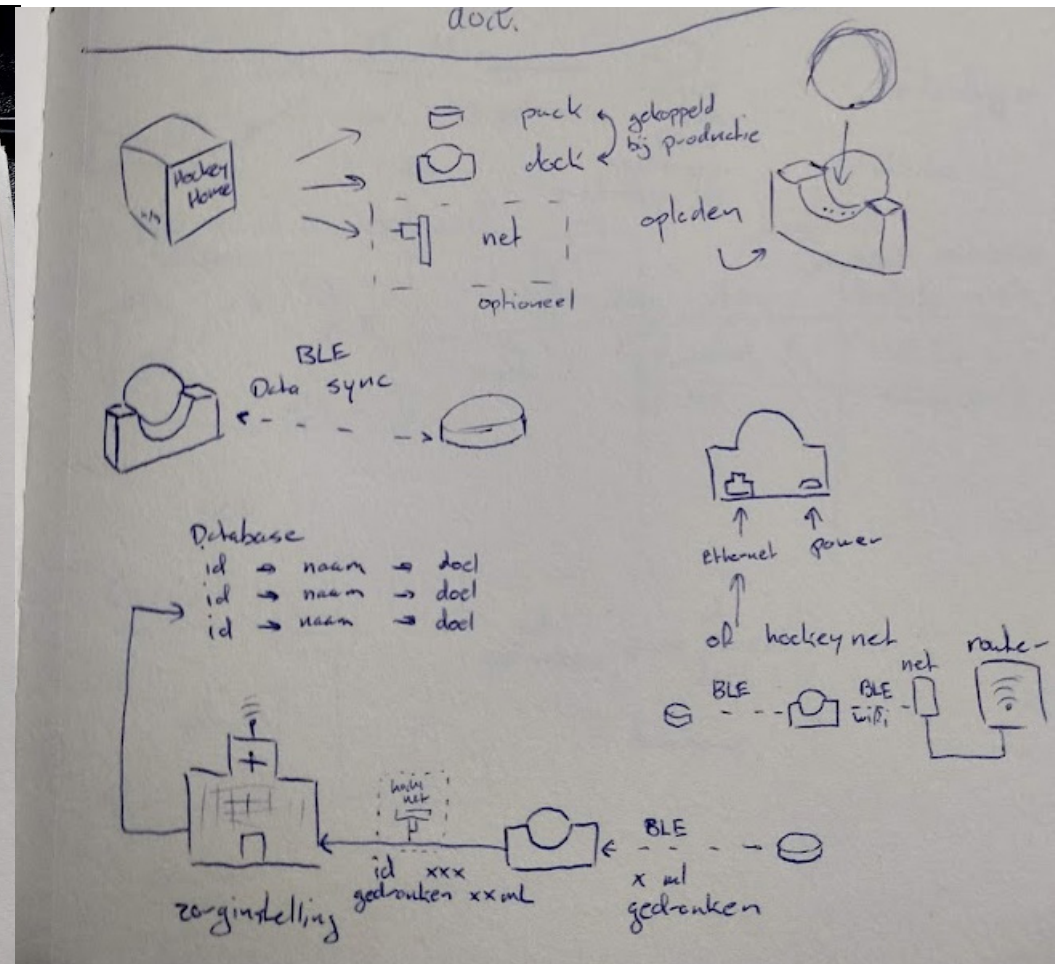 Hockey
Home
puck
dock
gekoppeld
bij productie
net
optioneel
opladen
BLE
Data sync
Database
id → naam → doel
id → naam → doel
id → naam → doel
Ethernet
power
of hockey net
BLE
BLE
wifi
net
router
zorginstelling
net
id xxx
gedronken xx ml
BLE
x ml
gedronken